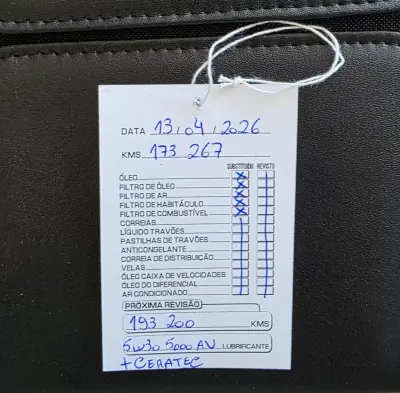 DATA 13/04/2026
KMS 173 267
SUBSTITUÍDO REVISTO
ÓLEO
FILTRO DE ÓLEO
FILTRO DE AR
FILTRO DE HABITÁCULO
FILTRO DE COMBUSTÍVEL
CORREIAS
LÍQUIDO TRAVÕES
PASTILHAS DE TRAVÕES
ANTICONGELANTE
CORREIA DE DISTRIBUIÇÃO
VELAS
ÓLEO CAIXA DE VELOCIDADES
ÓLEO DO DIFERENCIAL
AR CONDICIONADO
PRÓXIMA REVISÃO
193 200 KMS
5W30 5000 AV LUBRIFICANTE
+ CERATEC